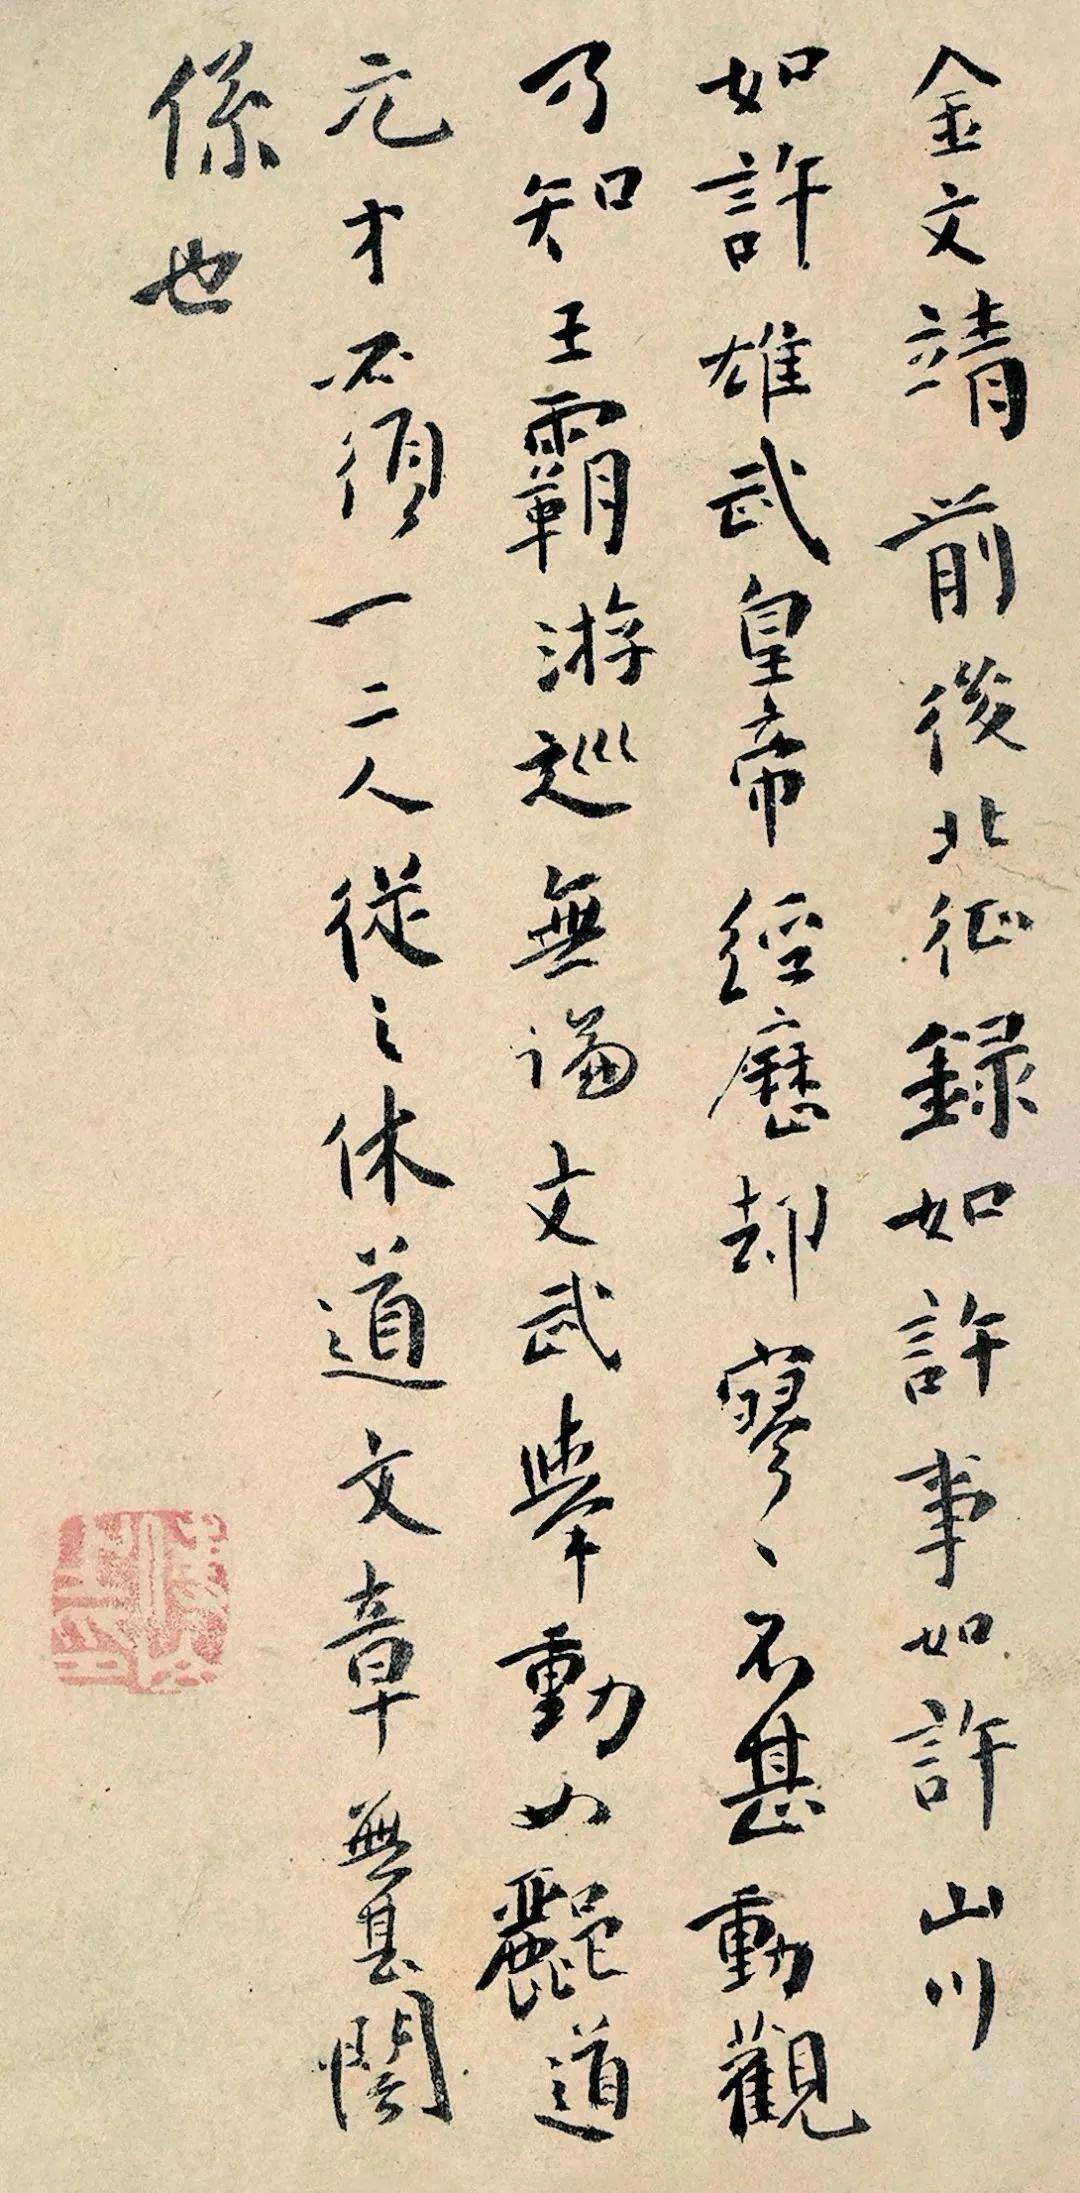 金文靖前後北征録如許事如許山川
如許雄武皇帝經歷却寥寥不甚動觀
乃知王霸游巡無論文武舉動如酈道
元才不須一二人從之休道文章無甚關
係也